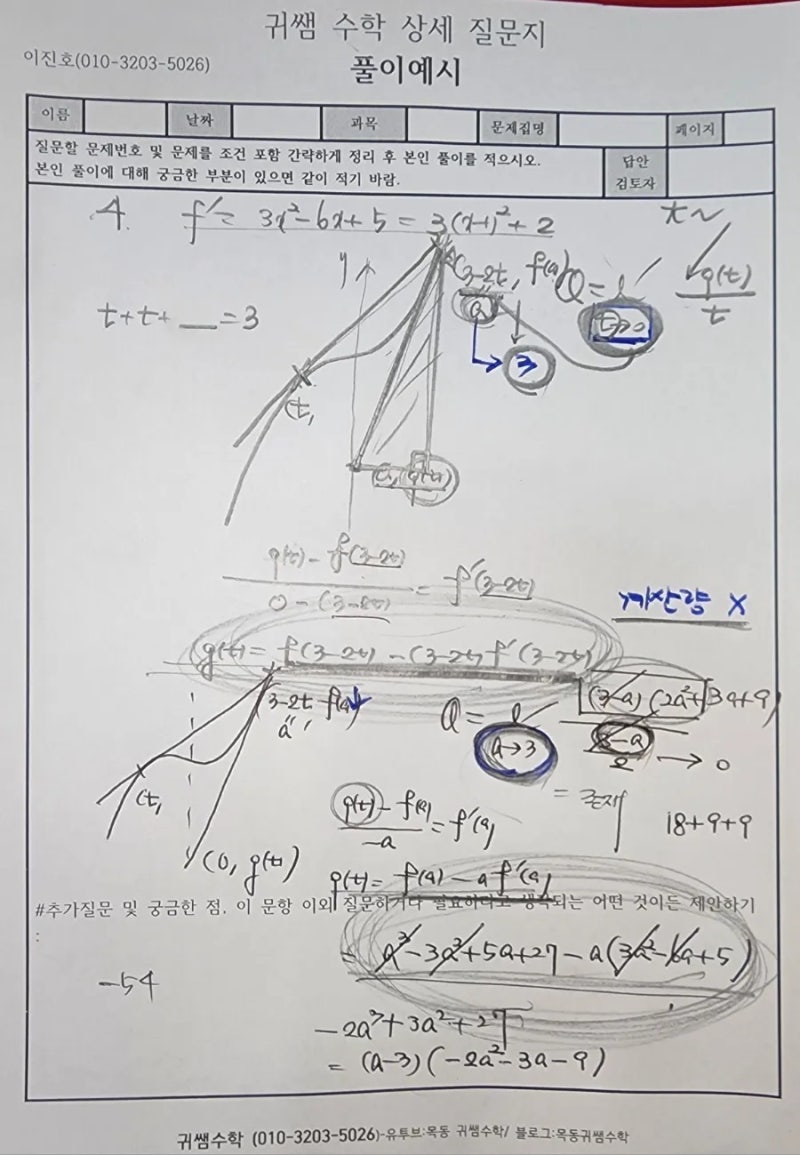 귀쌤 수학 상세 질문지
이진호(010-3203-5026)
풀이예시
이름 날짜 과목 문제집명 페이지
질문할 문제번호 및 문제를 조건 포함 간략하게 정리 후 본인 풀이를 적으시오.
본인 풀이에 대해 궁금한 부분이 있으면 같이 적기 바람.
답안
검토자
4. f' = 3x²-6x+5 = 3(x-1)²+2
t~
y
(3-2t, f(a))
a
3
t+t+__=3
(t,
g(t)
t
g(t) - f(3-2t)
0 - (3-2t)
= f'(3-2t)
계산량 X
g(t) = f(3-2t) - (3-2t) f'(3-2t)
(3-2t, f(a))
a
(t,
(0, g(t))
(3-a)(2a²+3a+9)
3-a
2
→ 0
a→3
= 존재
18+9+9
g(t) - f(a)
-a
= f'(a)
g(t) = f(a) - a f'(a)
#추가질문 및 궁금한 점, 이 문항 이외 질문하거나 필요하다고 생각되는 어떤 것이든 제안하기
:
= a³-3a²+5a+27-a(3a²-6a+5)
-54
-2a³+3a²+27
= (a-3)(-2a²-3a-9)
귀쌤수학 (010-3203-5026)-유투브:목동 귀쌤수학/ 블로그:목동귀쌤수학